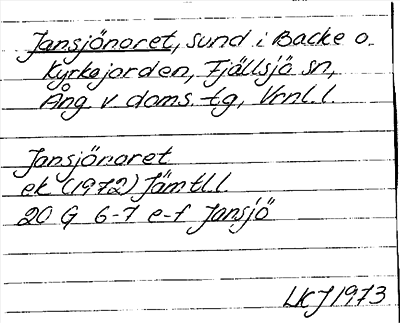 Jansjönoret, sund i Backe o.
Kyrkejorden, Fjällsjö sn,
Ång. v. doms. tg, Vrnl. l.
Jansjönoret
ek (1972) Jämtl. l.
20 G 6-7 e-f Jansjö
LKJ 1973